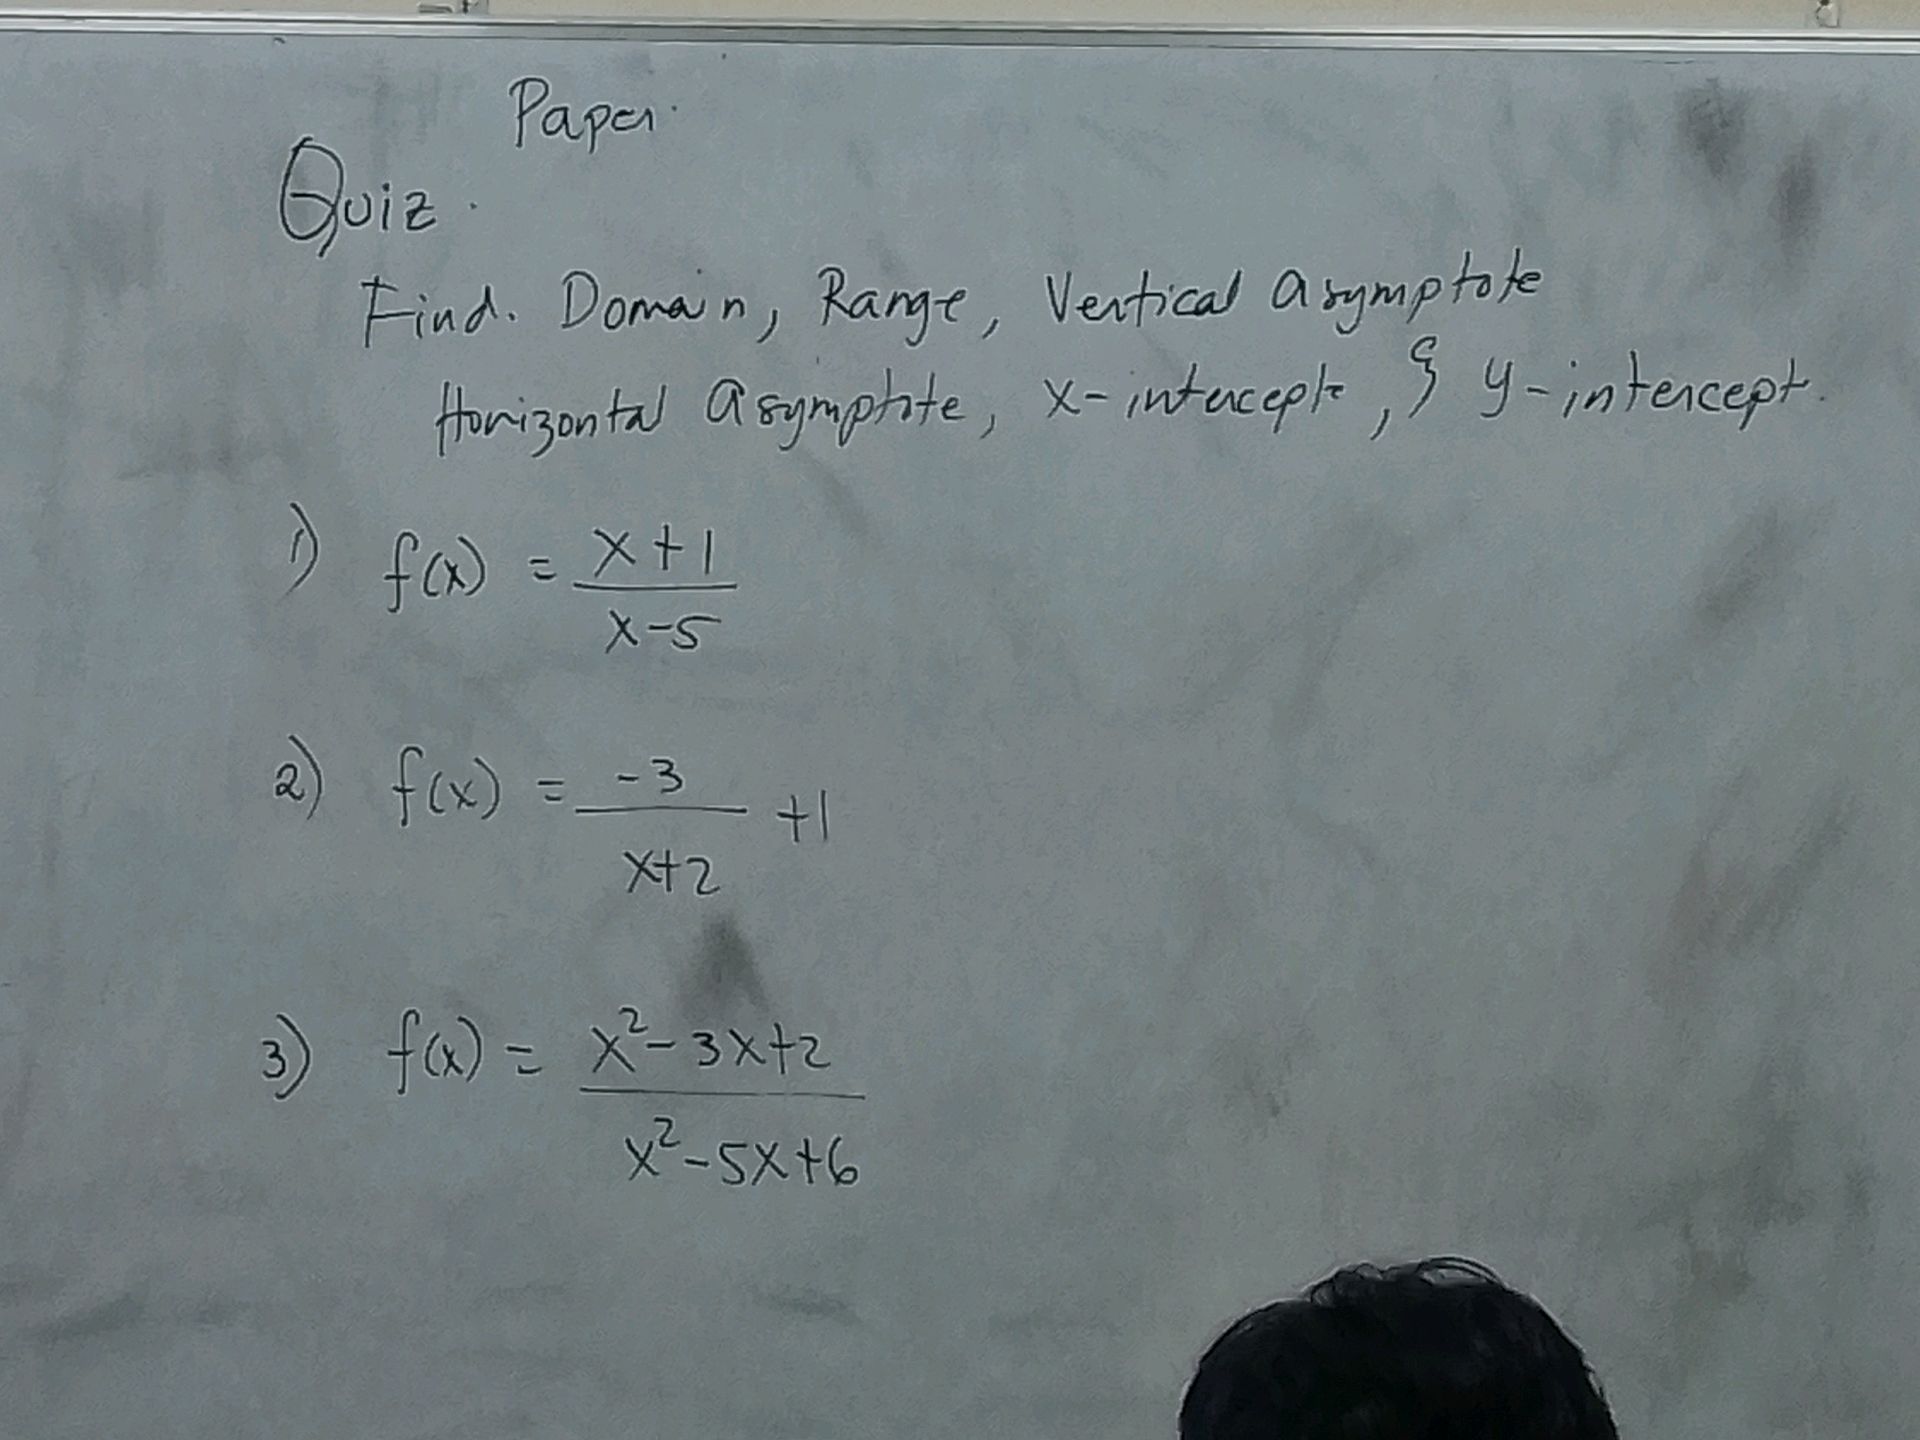 Paper.
Quiz.
Find. Domain, Range, Vertical asymptote
Horizontal asymptote, x-intercept, & y-intercept.
1) f(x) = x+1 / x-5
2) f(x) = -3 / x+2 +1
3) f(x) = x²-3x+2 / x²-5x+6